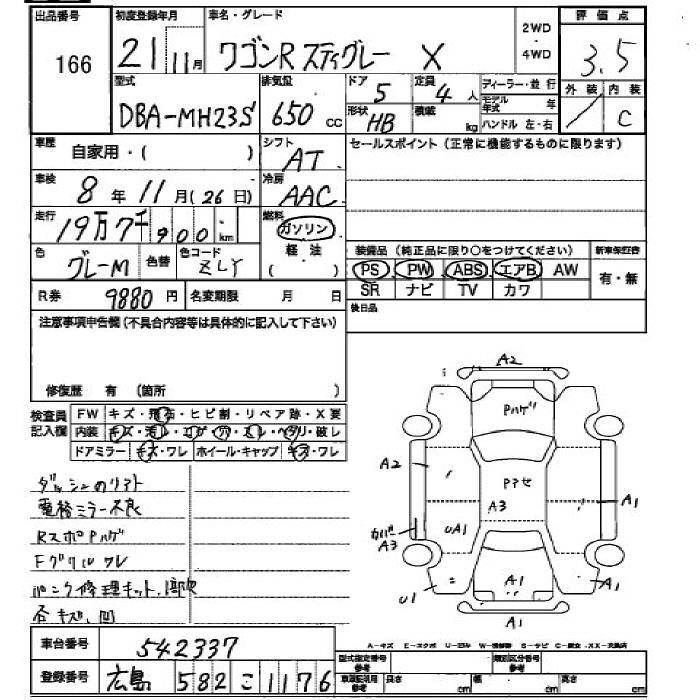 出品番号
166
初度登録年月
21 11月
車名・グレード
ワゴンR スティグレー X
2WD
・
4WD
評価点
3.5
外装 内装
C
型式
DBA-MH23S
排気量
650 cc
ドア
5
定員
4人
形状
HB
積載
kg
ディーラー・並行
モデル年式 年
ハンドル 左・右
車歴
自家用・( )
シフト
AT
車検
8年 11月(26日)
冷房
AAC
走行
19万7千900km
燃料
ガソリン
軽油
( )
色
グレーM
色替
色コード
ZLY
セールスポイント(正常に機能するものに限ります)
装備品(純正品に限り○をつけてください)
新車保証書
PS PW ABS エアB AW
有・無
SR ナビ TV カワ
R券 9880円
名変期限 月 日
後日品
注意事項申告欄(不具合内容等は具体的に記入して下さい)
修復歴 有 (箇所 )
検査員記入欄
FW キズ・飛石・ヒビ割・リペア跡・X要
内装 キズ・汚レ・コゲ・穴・スレ・ヘタリ・破レ
ドアミラー キズ・ワレ ホイール・キャップ キズ・ワレ
電格ミラー不良
RスポPハゲ
Fグリルワレ
パンク修理キット
A2
Pハゲ
A2
Pアセ
A3
UA1
A1
A3
A1
U1
A1
A1
車台番号
542337
登録番号
広島 582 こ 1176
型式指定番号
参考
類別区分番号
参考
車庫証明用
参考
長さ cm
幅 cm
高さ cm